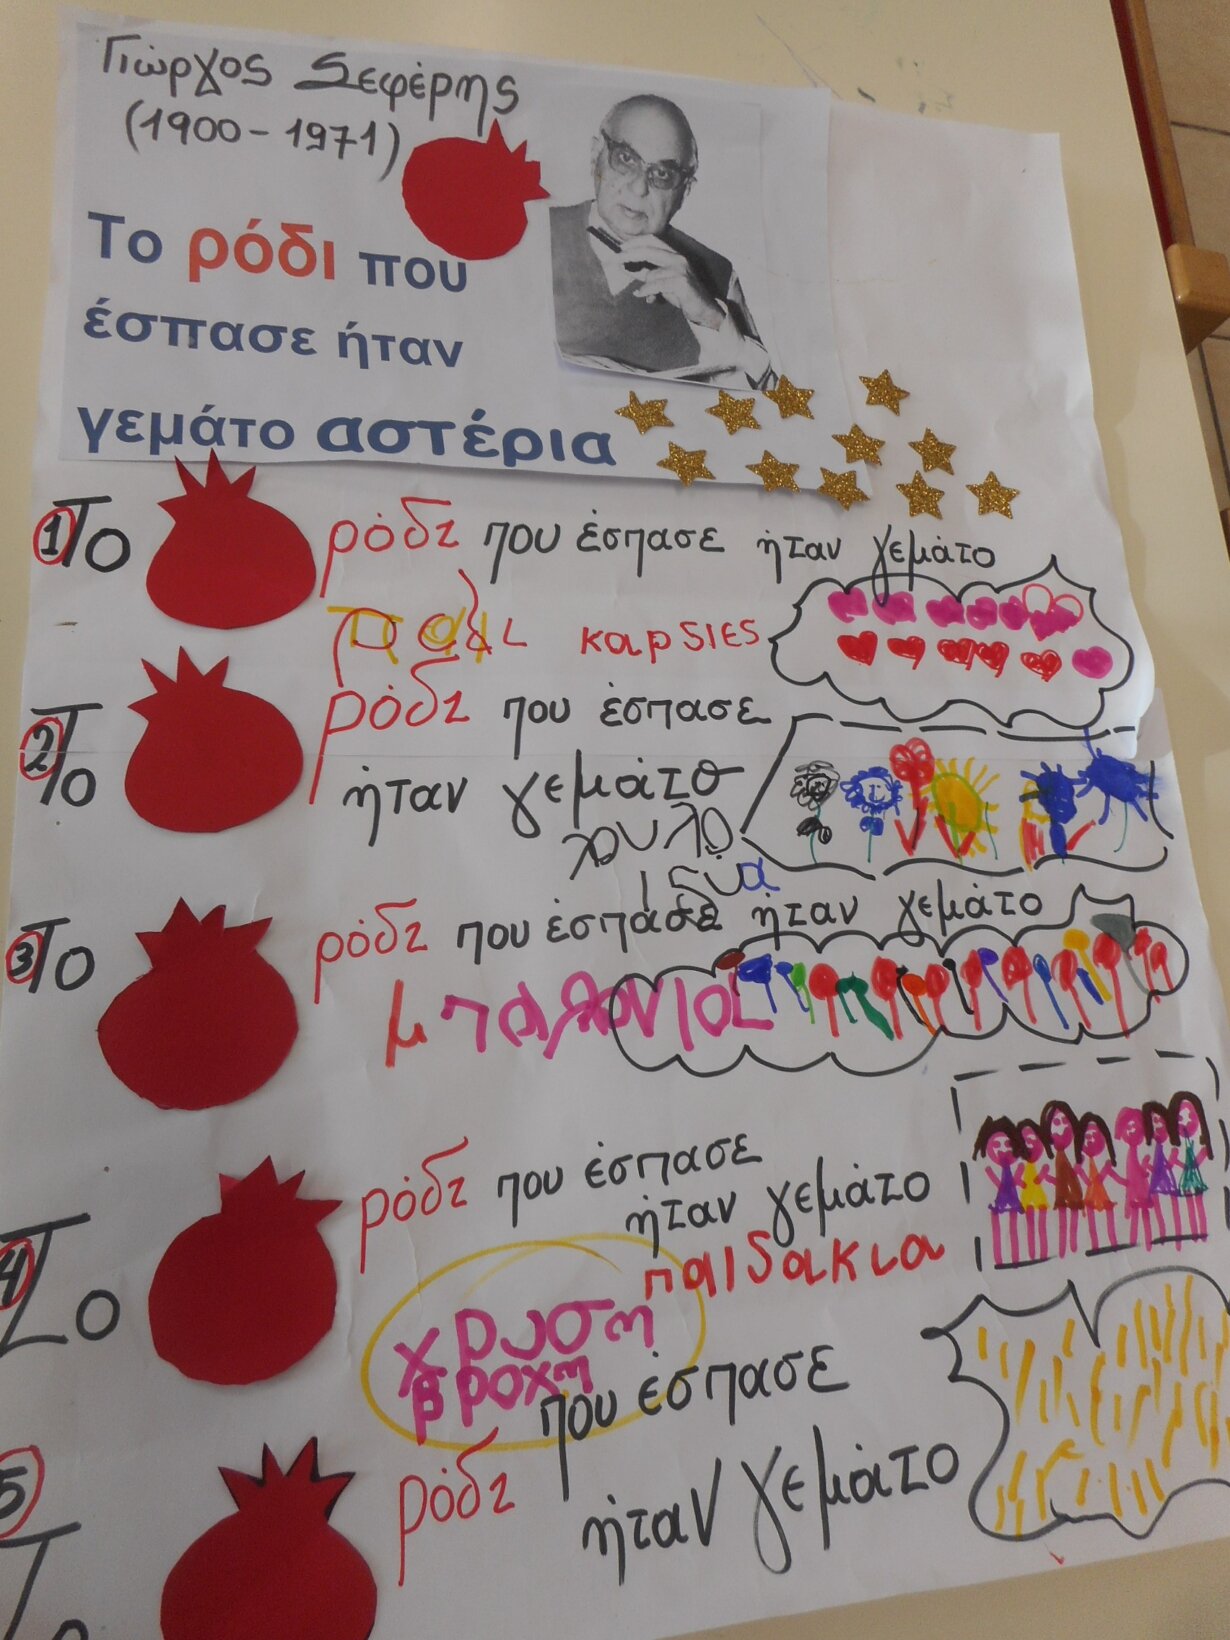 Γιώργος Σεφέρης
(1900-1971)
Το ρόδι που
έσπασε ήταν
γεμάτο αστέρια
1 Το ρόδι που έσπασε ήταν γεμάτο
καρsιεs
2 Το ρόδι που έσπασε
ήταν γεμάτο
λουλο
ιδυα
3 Το ρόδι που έσπασε ήταν γεμάτο
μπαλονια
4 Το ρόδι που έσπασε
ήταν γεμάτο
παιδακια
χρυση
βροχη
5 Το ρόδι που έσπασε
ήταν γεμάτο